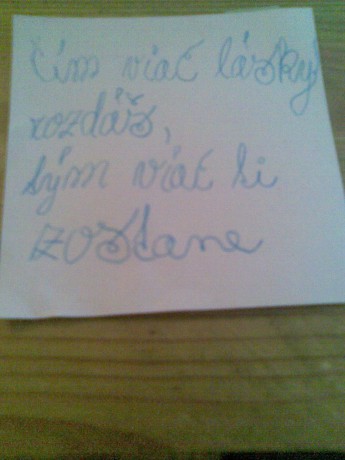 Čím viac lásky
rozdáš,
tým viac ti
zostane